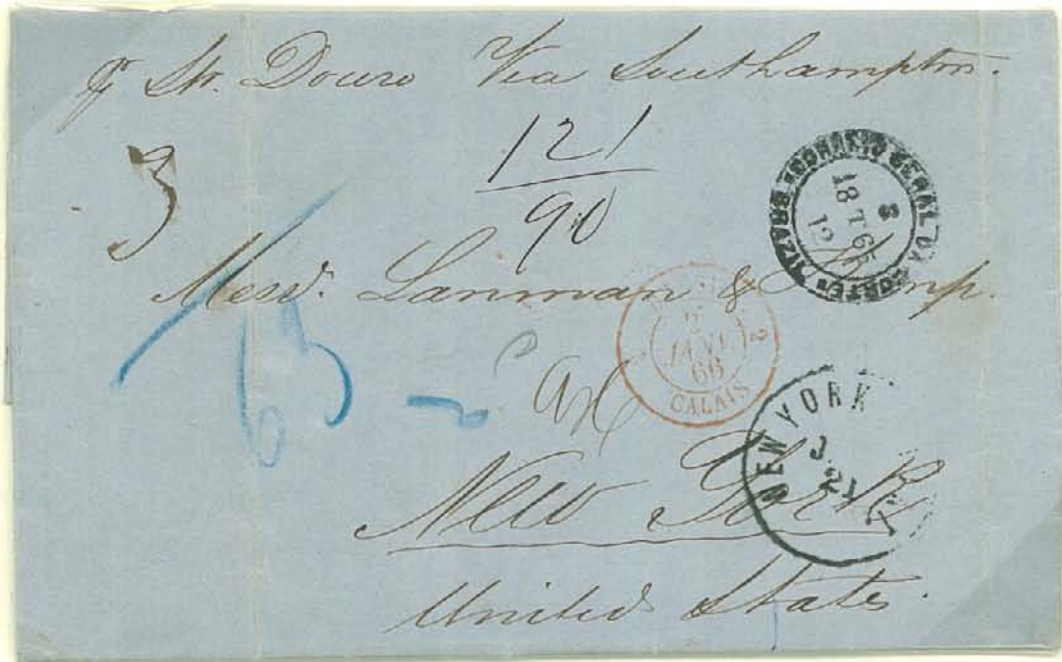 pr Str. Douro Via Southampton.
3
121
90
CORREIO GERAL DA CORTE
BRAZIL
8
18 T 65
12
Messrs. Lanman & Kemp.
2
JANV.
66
CALAIS
2
NEW YORK
J
21
New York
United States.